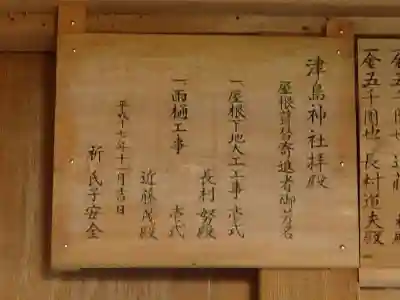 津島神社拝殿
屋根葺替寄進者御芳名
一、屋根下地大工工事 壱式
長村 努殿
一、雨樋工事 壱式
近藤 茂殿
平成十七年十一月吉日
祈 氏子安全
一金五千円也 長村道夫殿